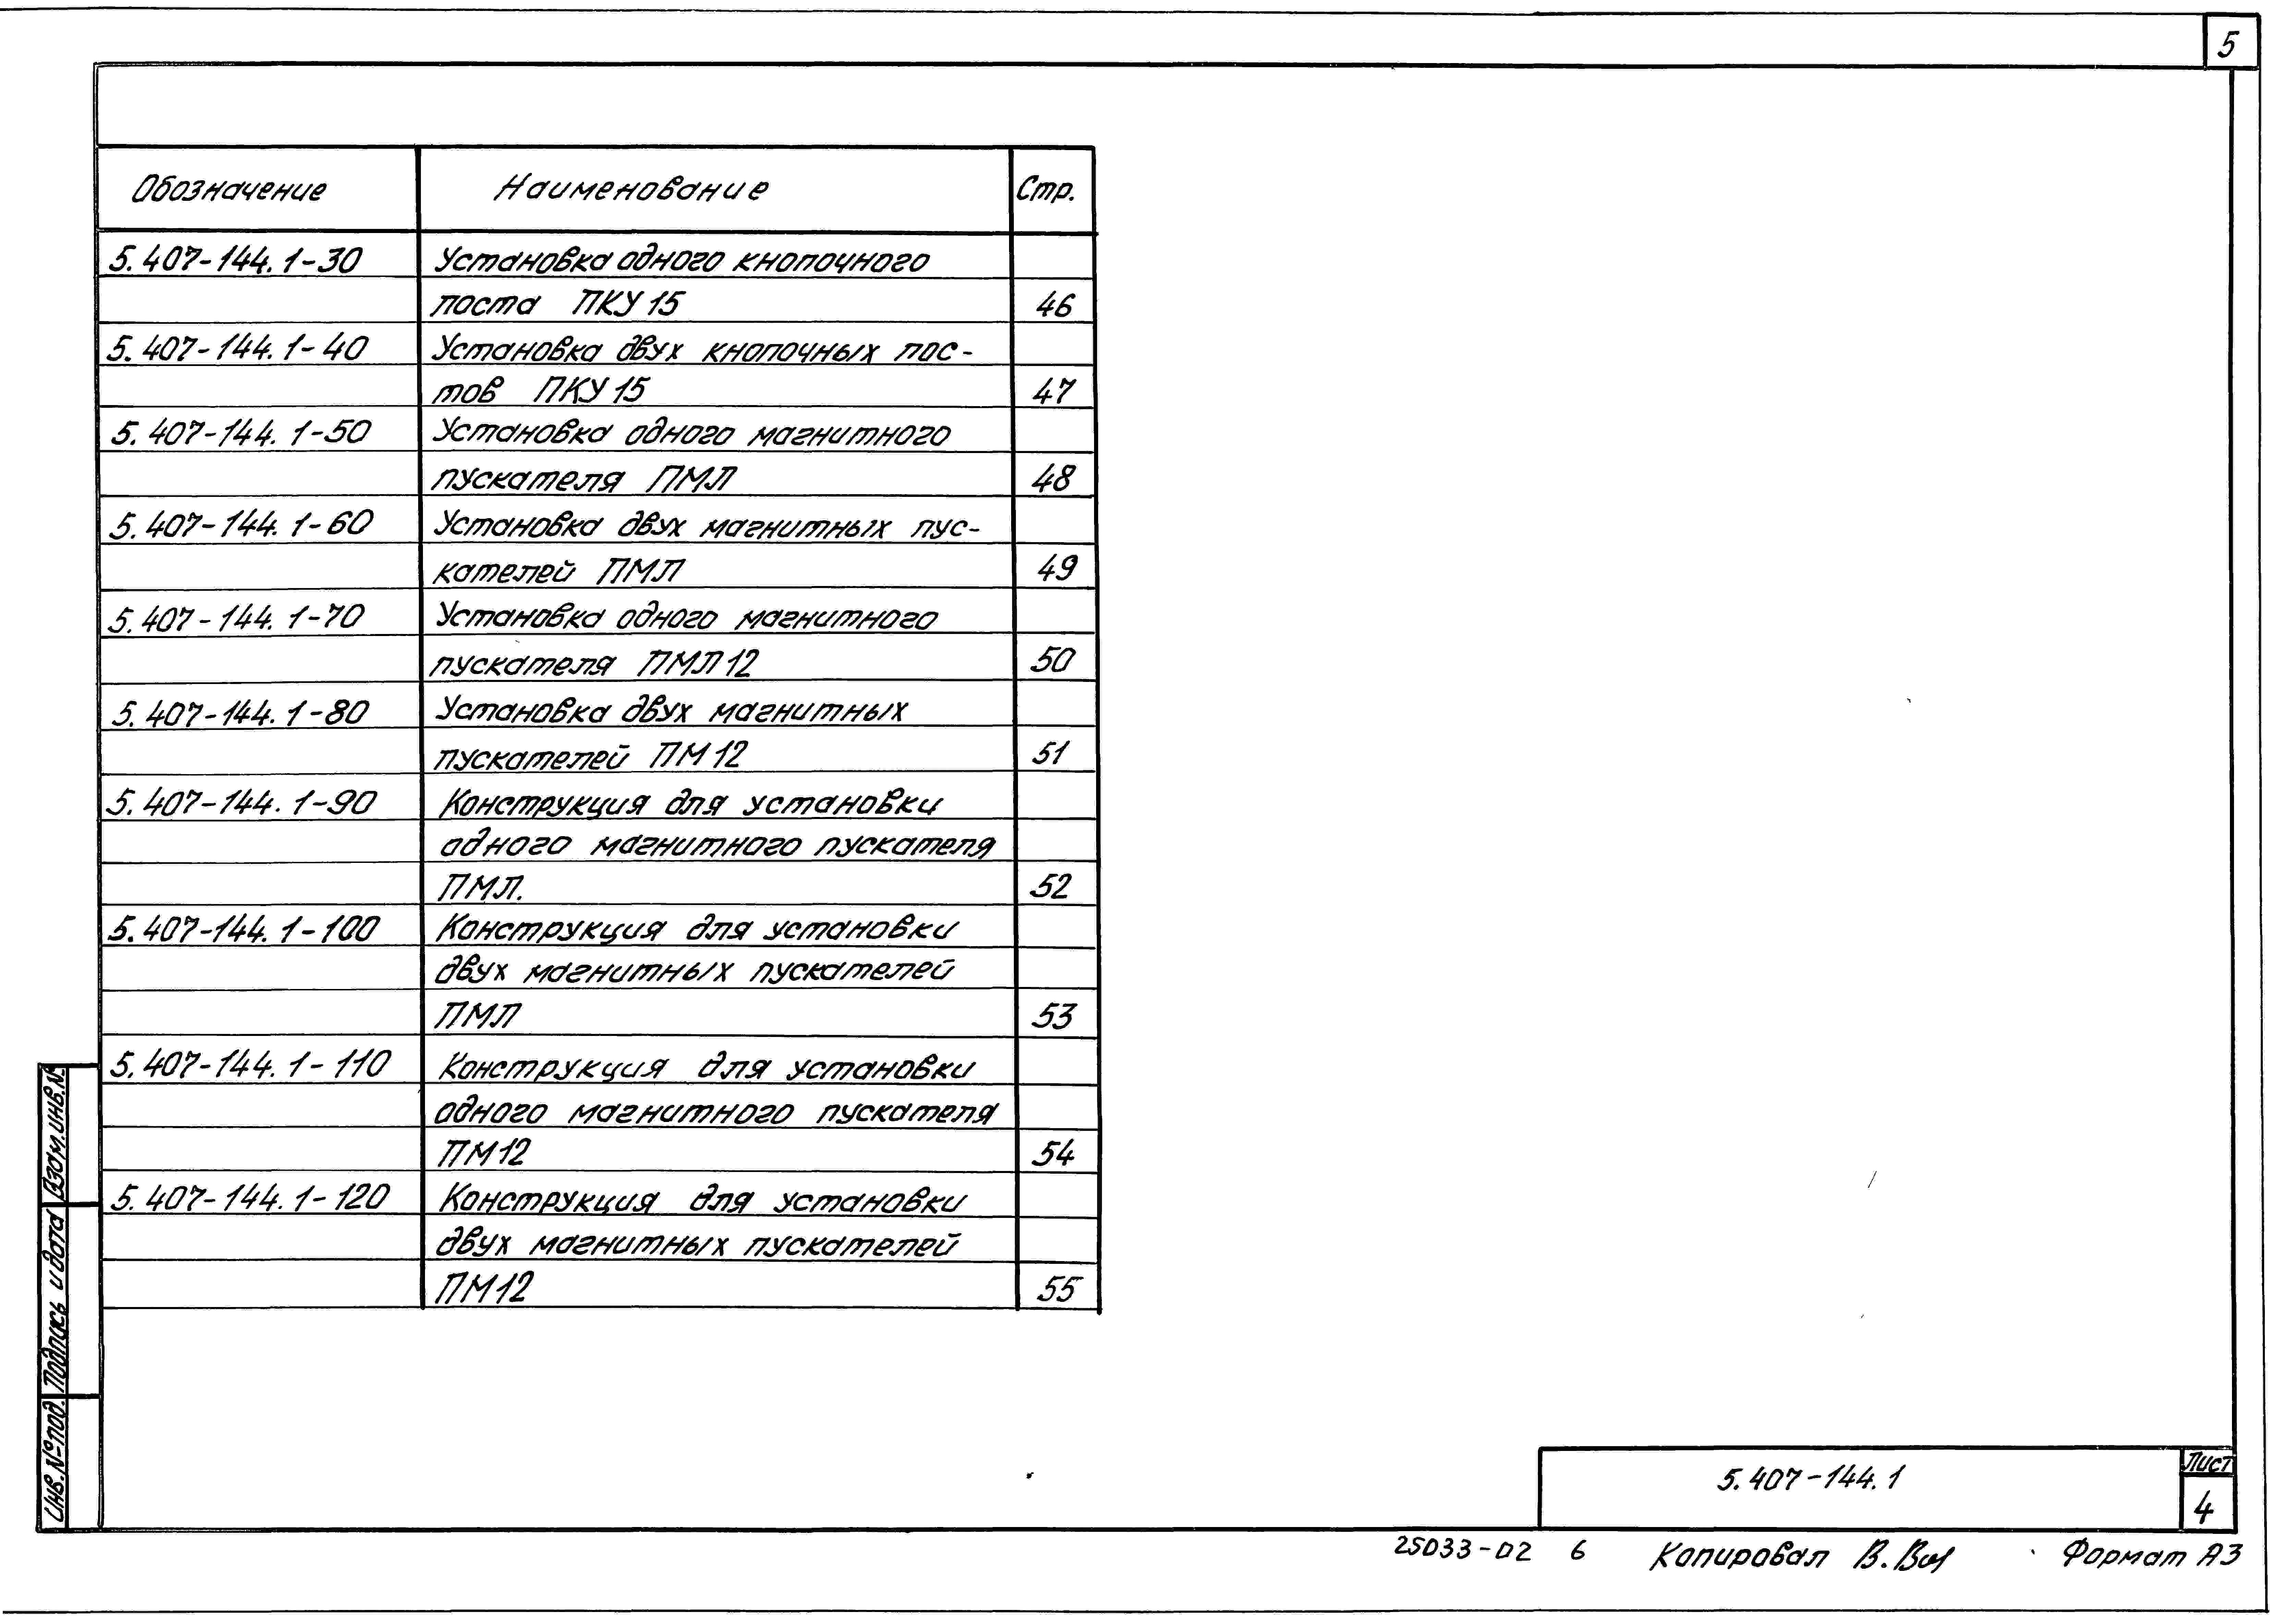 5
Обозначение Наименование Стр.
5.407-144.1-30 Установка одного кнопочного
поста ПКУ15 46
5.407-144.1-40 Установка двух кнопочных пос-
тов ПКУ15 47
5.407-144.1-50 Установка одного магнитного
пускателя ПМЛ 48
5.407-144.1-60 Установка двух магнитных пус-
кателей ПМЛ 49
5.407-144.1-70 Установка одного магнитного
пускателя ПМЛ12 50
5.407-144.1-80 Установка двух магнитных
пускателей ПМ12 51
5.407-144.1-90 Конструкция для установки
одного магнитного пускателя
ПМЛ. 52
5.407-144.1-100 Конструкция для установки
двух магнитных пускателей
ПМЛ 53
5.407-144.1-110 Конструкция для установки
одного магнитного пускателя
ПМ12 54
5.407-144.1-120 Конструкция для установки
двух магнитных пускателей
ПМ12 55
Взам.инв.№
Подпись и дата
Инв.№ под.
5.407-144.1
Лист
4
25033-02 6 Копировал В. Формат А3